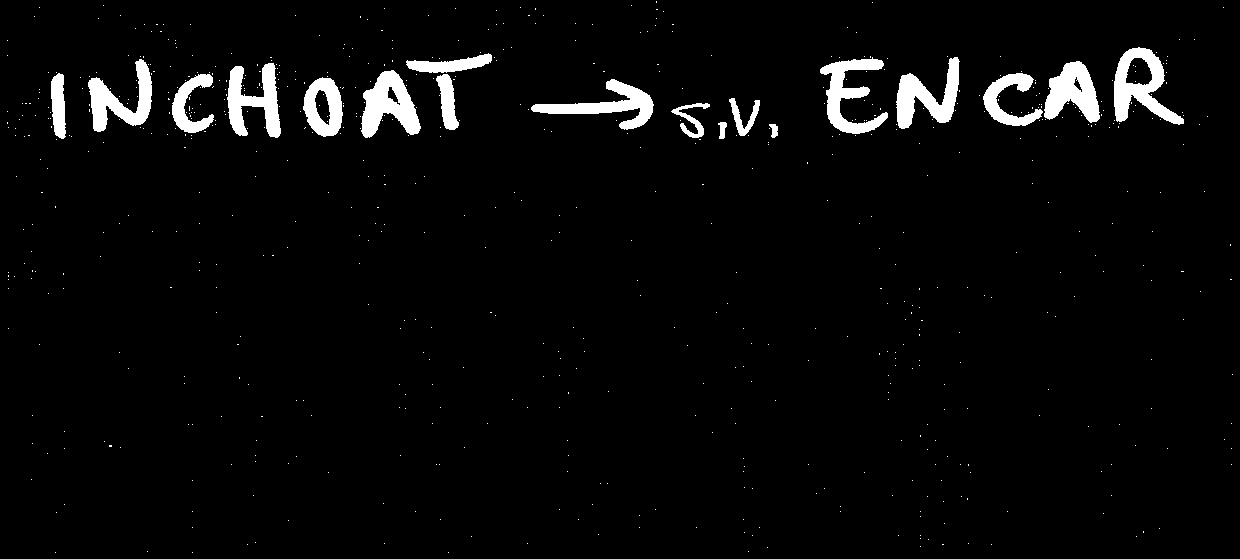 INCHOAT → s.v. ENCAR